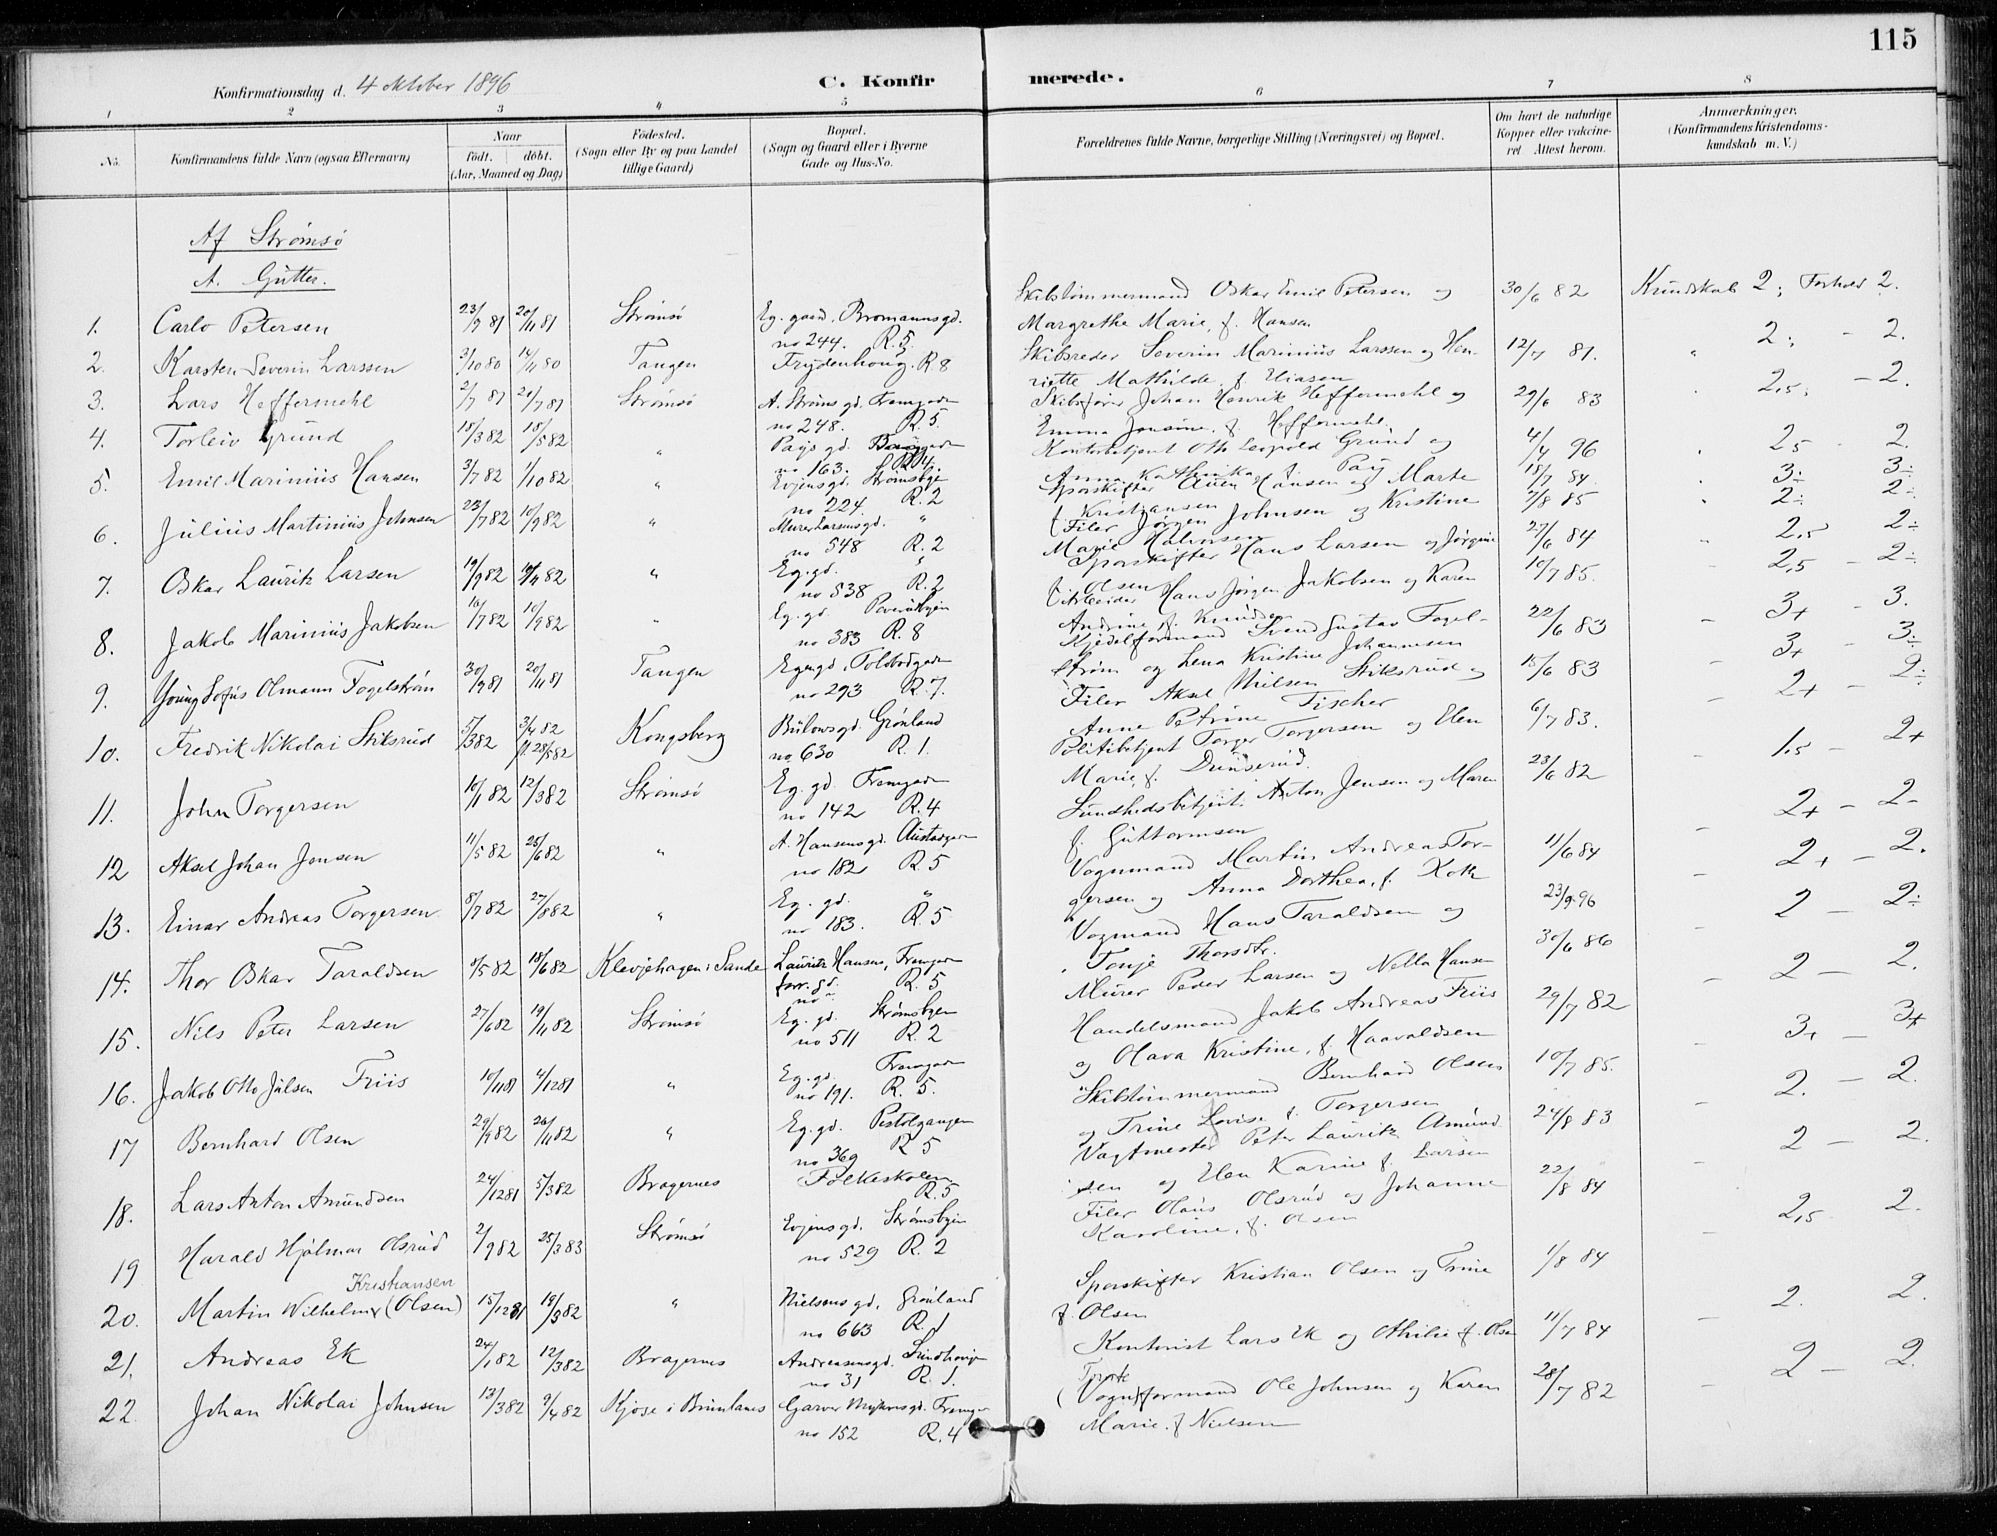 115
Konfirmationsdag d. 4 oktober 1896
C. Konfir merede.
1 2 3 4 5 6 7 8
No.
Konfirmandens fulde Navn (ogsaa Efternavn)
Naar
født. døbt.
(Aar, Maaned og Dag)
Fødested.
(Sogn eller By og paa Landet
tillige Gaard)
Bopæl.
(Sogn og Gaard eller i Byerne
Gade og Hus-No.
Forældrenes fulde Navne, borgerlige Stilling (Næringsvei) og Bopæl.
Om havt de naturlige
Kopper eller vakcine-
ret Attest herom.
Anmærkninger.
(Konfirmandens Kristendoms-
kundskab m. V.)
Af Strømsø
A. Gutter.
1. Carlo Petersen 23/9 81 20/11 81 Strømsø Eg. gaard. Bromannsgd. no 244. R. 5. Skibstømmermand Oskar Emil Petersen og Margrethe Marie, f. Hansen 30/6 82 Kundskab 2; Forhold 2.
2. Karsten Severin Larssen 3/10 80 14/11 80 Tangen Frydenhoug. R 8 Skibsreder Severin Marinius Larssen og Hen- riette Mathilde, f. Eliasen 12/7 81. " 2; - 2.
3. Lars Heffermehl 2/7 81 20/7 81 Strømsø A. Strøms gd. Tramgaden no 248. R. 5. Skibsfører Johan Henrik Heffermehl og Emma Jensine, f. Heffermehl 29/6 83 2,5; - 2.
4. Torleiv Grund 18/3 82 18/5 82 " no 163. R. 4. Kontorbetjent Otto Leopold Grund og Anna Kathinka f. Paij 4/4 96 2,5 - 2.
5. Emil Marinius Hansen 3/7 82 1/10 82 " Evjensgd. Strømsbyn no 224. R. 2 Sporskifter Hansen og Marte f. Kristiansen 18/7 84. 3÷ 3÷
6. Julius Martinius Johnsen 23/7 82 10/9 82 " Murer Larsens gd. " no 548 R. 2 Filer Jørgen Johnsen og Kristine Marie Halvorsen 7/8 85 2÷ 2÷
7. Oskar Lauritz Larsen 19/9 82 19/11 82 " Eg. gd. " no 538 R. 2 Sporskifter Hans Larsen og Jørgine f. Olsen 27/6 84 2,5 2÷
8. Jakob Marinius Jakobsen 16/7 82 10/9 82 " Eg. gd. no 383 R. 8 Arbeider Hans Jørgen Jakobsen og Karen Andrine f. Knudsen 10/7 85. 2,5 - 2÷
9. Young Sofus Olmann Fogelstrøm 30/9 81 20/11 81 Tangen Egengd. Toldbodgaden no 293 R. 7. Kjedelformand Svend Gustav Fogel- strøm og Lena Kristine Johannesen 22/6 83 3+ - 3.
10. Fredrik Nikolai Stiksrud 5/3 82 3/4 82 28/5 82 Kongsberg Bülowsgd. Grønland no 630 R. 1. Filer Aksel Nielsen Stiksrud og Anne Petrine Tischer 15/6 83 3+ - 3÷
11. John Torgersen 10/1 82 12/3 82 Strømsø Eg. gd. Tramgaden no 142 R. 4 Politibetjent Torger Torgersen og Elen Marie, f. Dunserud. 6/7 83. 2+ - 2÷
12 Aksel Johan Jensen 11/5 82 25/6 82 " A. Hansensgd. Austadgaden no 182 R. 5 Sundhedsbetjent Anton Jensen og Maren f. Guttormsen 23/6 82 1,5 - 2+
13. Einar Andreas Torgersen 8/7 82 27/8 82 " Eg. gd. " no 183. R. 5 Vognmand Martin Andreas Tor- gersen og Anna Dorthea, f. Roth 11/6 84 2+ - 2-
14. Thor Oskar Taraldsen 9/5 82 18/6 82 Klevjehagen i Sande Lauritz Hansens, Tramgaden forr. gd. no " R. 5 Vogmand Hans Taraldsen og Tonje Thorsdtr. 23/9 96 2+ - 2.
15. Nils Peter Larsen 27/6 82 19/11 82 Strømsø Eg. gd. Strømsbyen no 511 R. 2 Murer Peder Larsen og Nella Hansen 30/6 86 2 - 2÷
16. Jakob Otto Julsen Friis 10/11 81 4/12 81 " Eg. gd. Tramgaden no 191. R. 5. Handelsmand Jakob Andreas Friis og Olava Kristine, f. Haavaldsen 29/7 82 2 - 2.
17 Bernhard Olsen 29/9 82 26/11 82 " Eg. gd. Pistolgangen no 369 R. 5 Skibstømmermand Bernhard Olsen og Trine Lovise f. Torgersen 10/7 85. 3+ - 3+
18. Lars Anton Amundsen 24/12 81 5/3 82 Bragernes Folkeskolen R. 5 Vagtmester Peter Lauritz Amund sen og Elen Karine f. Larsen 24/8 83 2. - 2.
19 Harald Hjalmar Olsrud 2/9 82 25/3 83 Strømsø Evjensgd. Strømsbyen no 529 R. 2 Filer Olaus Olsrud og Johanne Karoline, f. Olsen 22/8 84 2 - 2.
20. Martin Wilhelm Kristiansen (Olsen) 15/12 81 19/3 82 " Nielsens gd. Grønland no 663 R. 1 Sporskifter Kristian Olsen og Trine f. Olsen 1/8 84 2,5 2.
21. Andreas Ek 24/1 82 12/3 82 Bragernes Andreasensgd. Sundhaugen no 31 R. 1. Kontorist Lars Ek og Othilie f. Olsen 11/7 84 2. 2.
22. Johan Nikolai Johnsen 13/3 82 9/4 82 Kjose i Brunlanes Garver Myhresgd. Tramga no 152 R. 4 (Vognformand Ole Johnsen og Karen Marie. f Nielsen 28/7 82 2 - 2.